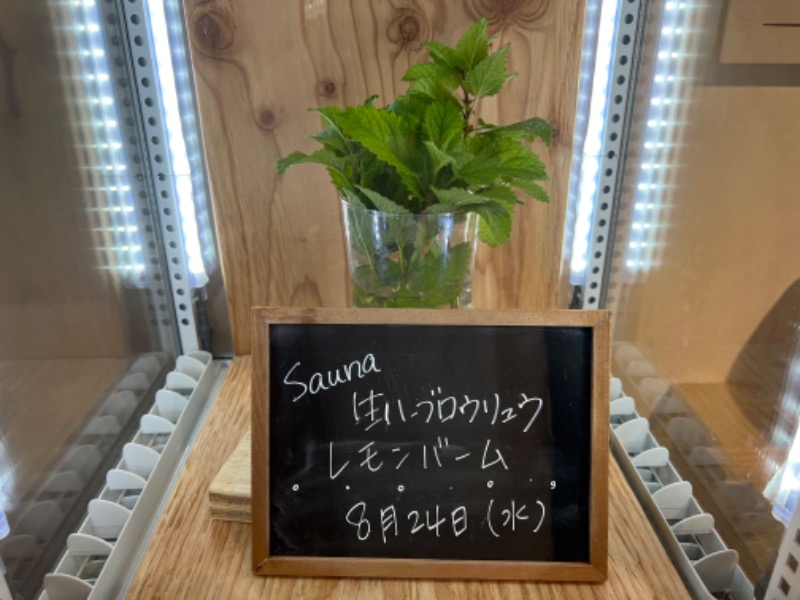 Sauna
生ハーブロウリュウ
レモンバーム
8月24日(水)